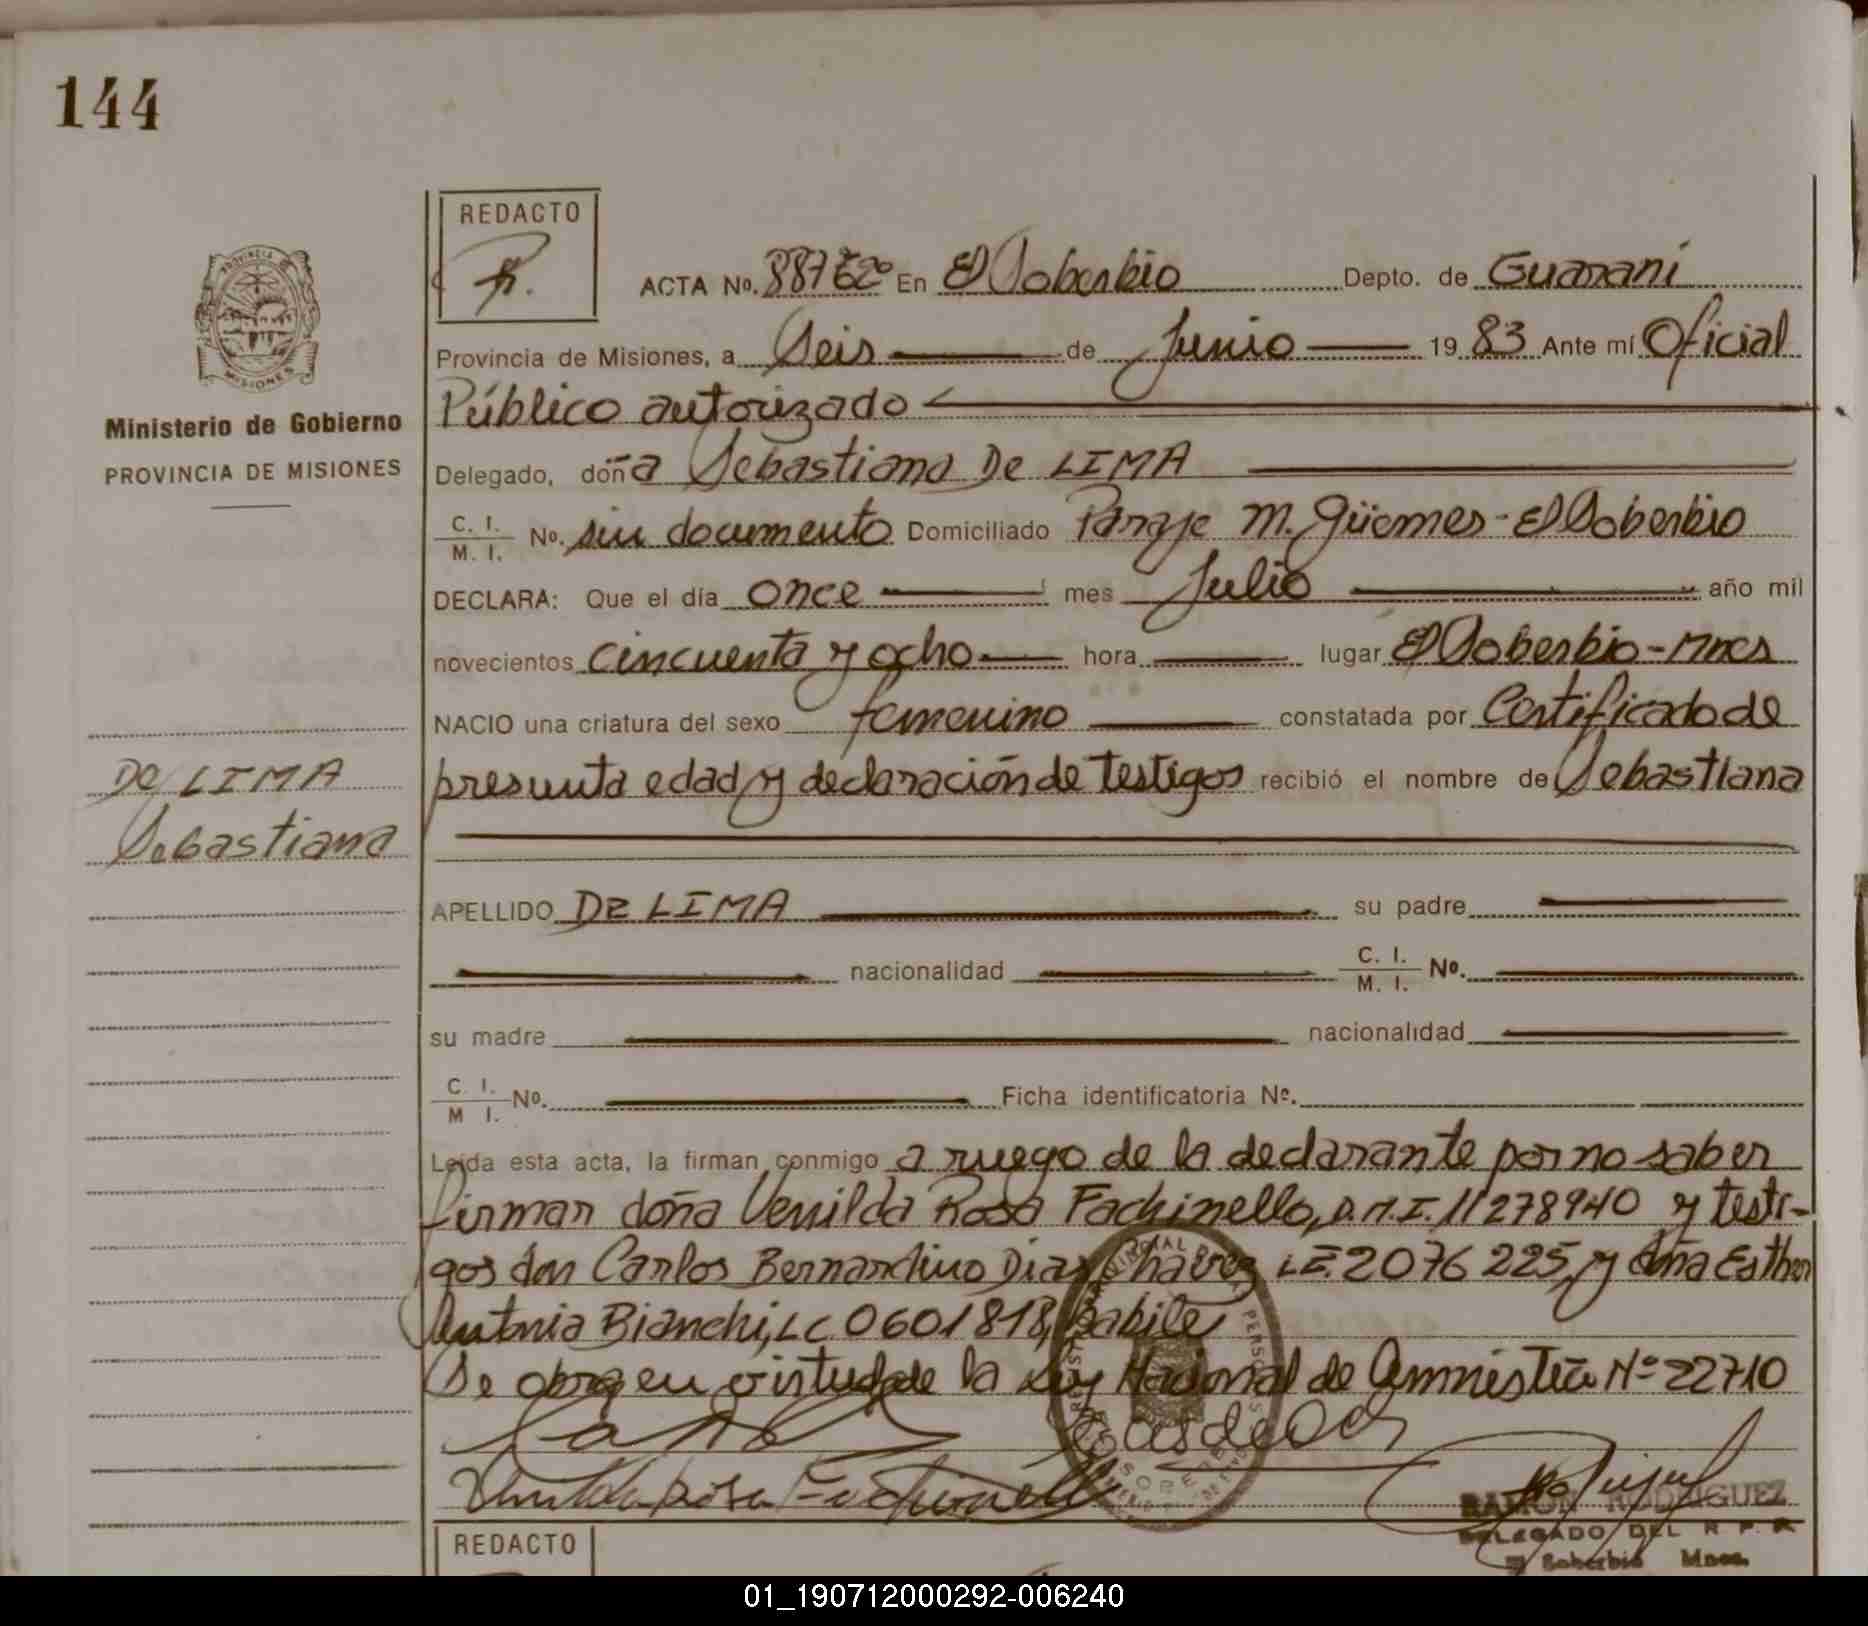 144
REDACTO
ACTA No. 88762º En El Soberbio Depto. de Guaraní
Provincia de Misiones, a Seis de Junio 1983 Ante mí Oficial
Público autorizado
Delegado, doña Sebastiana De LIMA
C. I. M. I. No. sin documento Domiciliado Paraje M. Güemes - El Soberbio
DECLARA: Que el día once mes Julio año mil
novecientos cincuenta y ocho hora lugar El Soberbio - Mnes
NACIO una criatura del sexo femenino constatada por Certificado de
presunta edad y declaración de testigos recibió el nombre de Sebastiana
APELLIDO DE LIMA su padre
nacionalidad C. I. M. I. No.
su madre nacionalidad
C. I. M I. No. Ficha identificatoria Nº.
Leída esta acta, la firman conmigo a ruego de la declarante por no saber
firmar doña Venilda Rosa Fachinello, D.N.I. 11278940 y testi-
gos don Carlos Bernardino Diaz Chavez LE. 2076225, y doña Esther
Antonia Bianchi, LC 0601818, habile
Se obra en virtud de la Ley Nacional de Amnistía Nº 22710
RAMON RODRIGUEZ
DELEGADO DEL R. P. P.
El Soberbio Mnes.
PROVINCIA DE
MISIONES
Ministerio de Gobierno
PROVINCIA DE MISIONES
De LIMA
Sebastiana
REDACTO
01_190712000292-006240